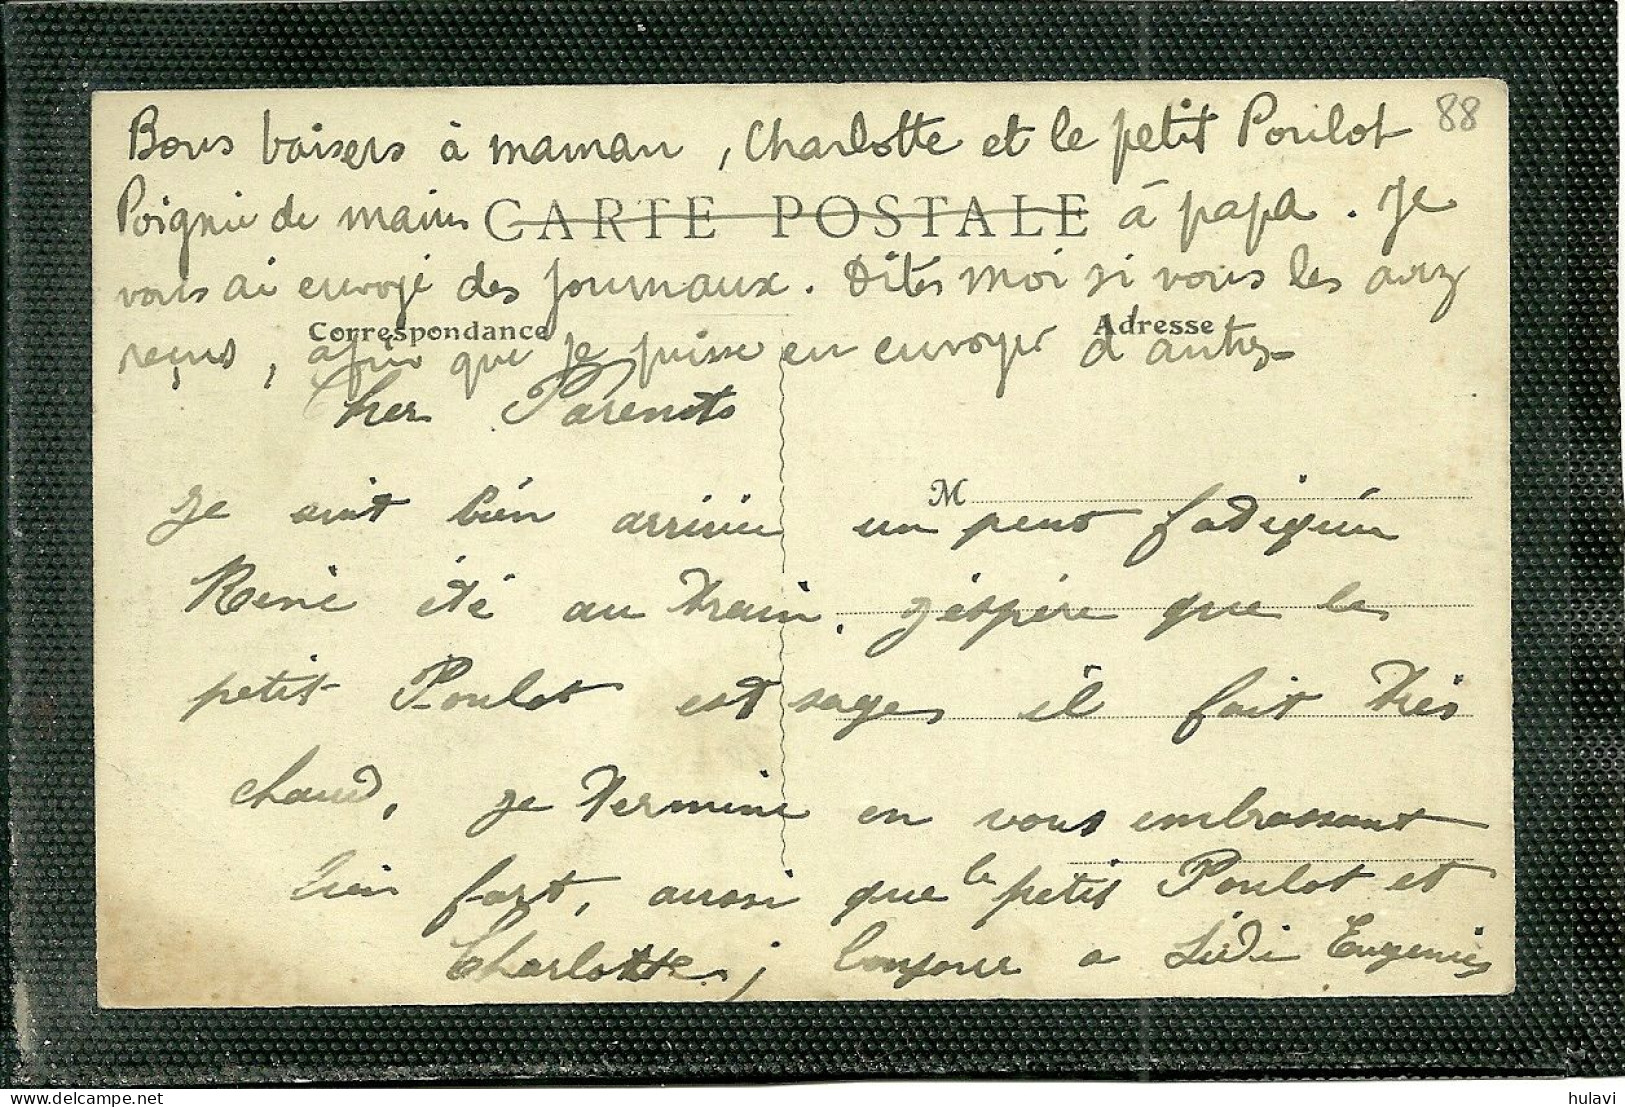 Bons baisers à maman, Charlotte et le petit Poulot 88
Poignie de mains CARTE POSTALE à papa. Je
vous ai envoyé des journaux. Dites moi si vous les avez
Correspondance Adresse
reçus, afin que je puisse en envoyer d'autres
Cher Parents
M
Je suit bien arrivée un peut fadiguén
René été au train. j'éspére que le
petit Poulot est sages il fait très
chaud, je termine en vous embrassant
bien fort, aussi que le petit Poulot et
Charlotte, bonjour a Lidi Eugenies
hulavi